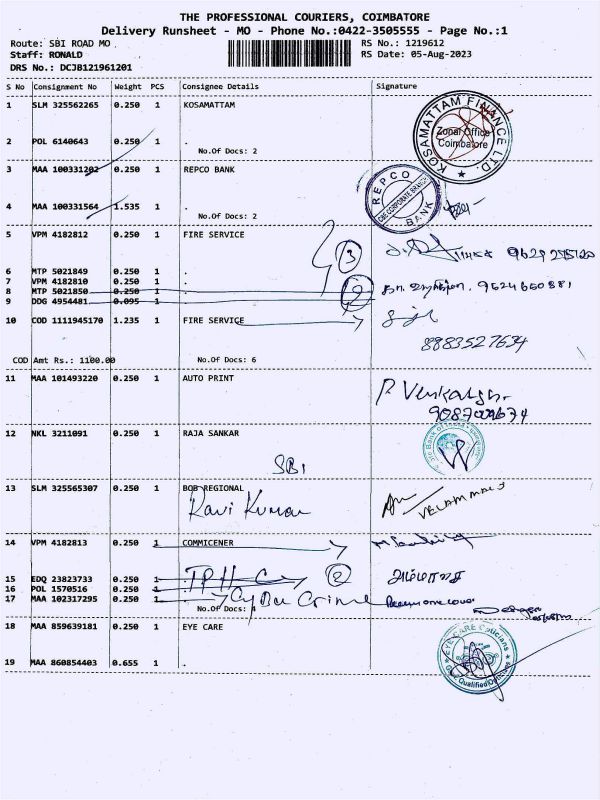 THE PROFESSIONAL COURIERS, COIMBATORE
Delivery Runsheet - MO - Phone No.:0422-3505555 - Page No.:1
Route: SBI ROAD MO RS No.: 1219612
Staff: RONALD RS Date: 05-Aug-2023
DRS No.: DCJB121961201
S No Consignment No Weight PCS Consignee Details Signature
1 SLM 325562265 0.250 1 KOSAMATTAM
KOSAMATTAM FINANCE LTD.
Zonal Office
Coimbatore
2 POL 6140643 0.250 1 .
No.Of Docs: 2
3 MAA 100331202 0.250 1 REPCO BANK
REPCO BANK
CBE CORPORATE BRANCH
4 MAA 100331564 1.535 1 .
No.Of Docs: 2
5 VPM 4182812 0.250 1 FIRE SERVICE
3
6 MTP 5021849 0.250 1 .
7 VPM 4182810 0.250 1 .
8 MTP 5021850 0.250 1 .
2
9 DDG 4954481 0.095 1 .
10 COD 1111945170 1.235 1 FIRE SERVICE
8883527634
COD Amt Rs.: 1100.00 No.Of Docs: 6
11 MAA 101493220 0.250 1 AUTO PRINT
12 NKL 3211091 0.250 1 RAJA SANKAR
SBI
13 SLM 325565307 0.250 1 BOB REGIONAL
Ravi Kumar
VELAMMAL
14 VPM 4182813 0.250 1 COMMICENER
15 EDQ 23823733 0.250 1 .
2
16 POL 1570516 0.250 1 .
17 MAA 102317295 0.250 1 . Cyber Crime
No.Of Docs: 4
18 MAA 859639181 0.250 1 EYE CARE
EYE CARE Opticians
19 MAA 860854403 0.655 1 .